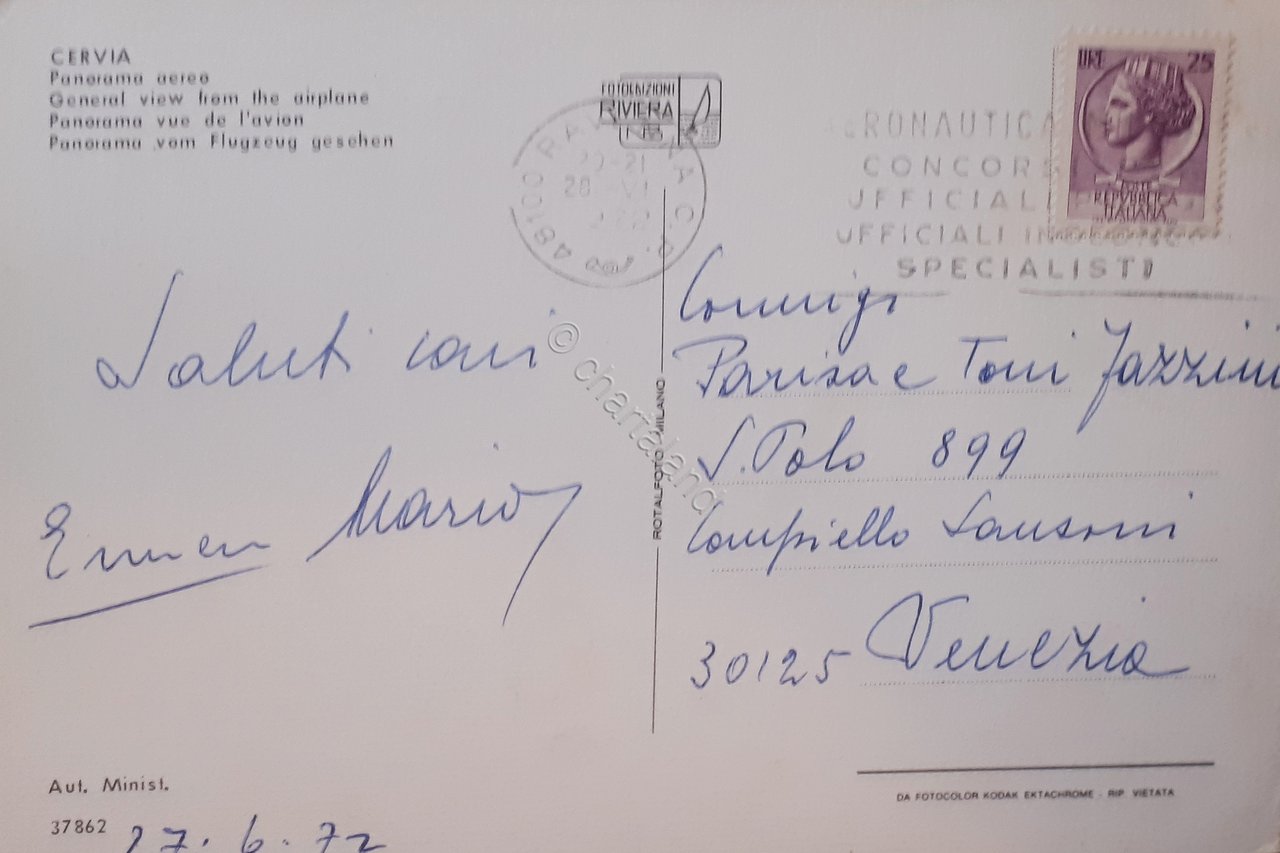 CERVIA
Panorama aereo
General view from the airplane
Panorama vue de l'avion
Panorama vom Flugzeug gesehen
FOTOEDIZIONI
RIVIERA
LIRE 25
POSTE
REPVBBLICA
ITALIANA
48100 RAVENNA C.P.
20-21
28 VI
AERONAUTICA
CONCORS
UFFICIALI
UFFICIALI IN
SPECIALISTI
Saluti cari
Mario
Coniugi
e Toni Jazzini
S. Polo 899
Campiello Sansoni
30125 Venezia
ROTALFOTO - MILANO
© chartaland
Aut. Minist.
37862
27. 6. 72
DA FOTOCOLOR KODAK EKTACHROME - RIP. VIETATA